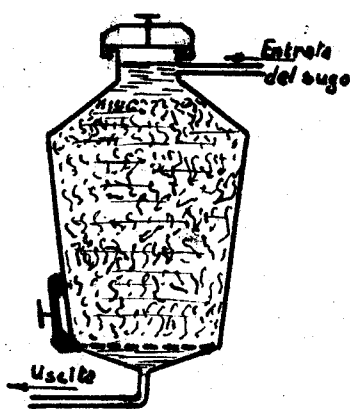 Entrata
del sugo
Uscita